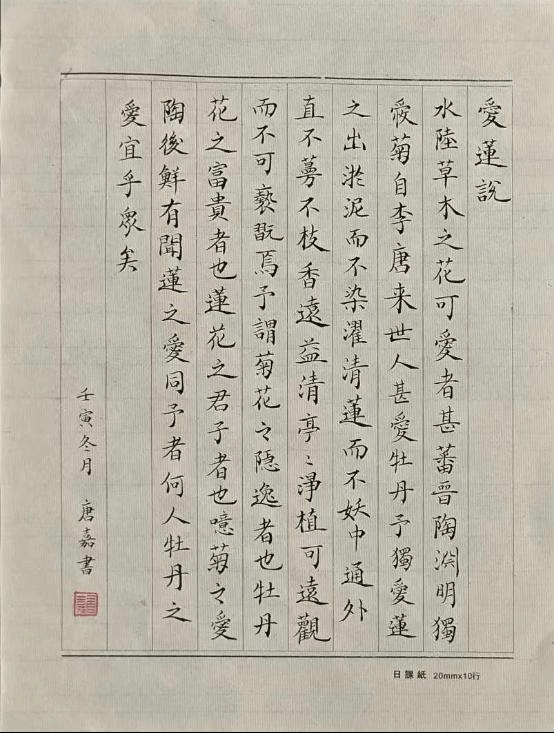 愛蓮說
水陸草木之花可愛者甚蕃晉陶渕明獨
愛菊自李唐来世人甚愛牡丹予獨愛蓮
之出淤泥而不染濯清蓮而不妖中通外
直不蔓不枝香遠益清亭〻淨植可遠觀
而不可褻翫焉予謂菊花之隐逸者也牡丹
花之富貴者也蓮花之君子者也噫菊之愛
陶後鮮有聞蓮之愛同予者何人牡丹之
愛宜乎眾矣
壬寅冬月 唐嘉書
日課紙 20mmx10行